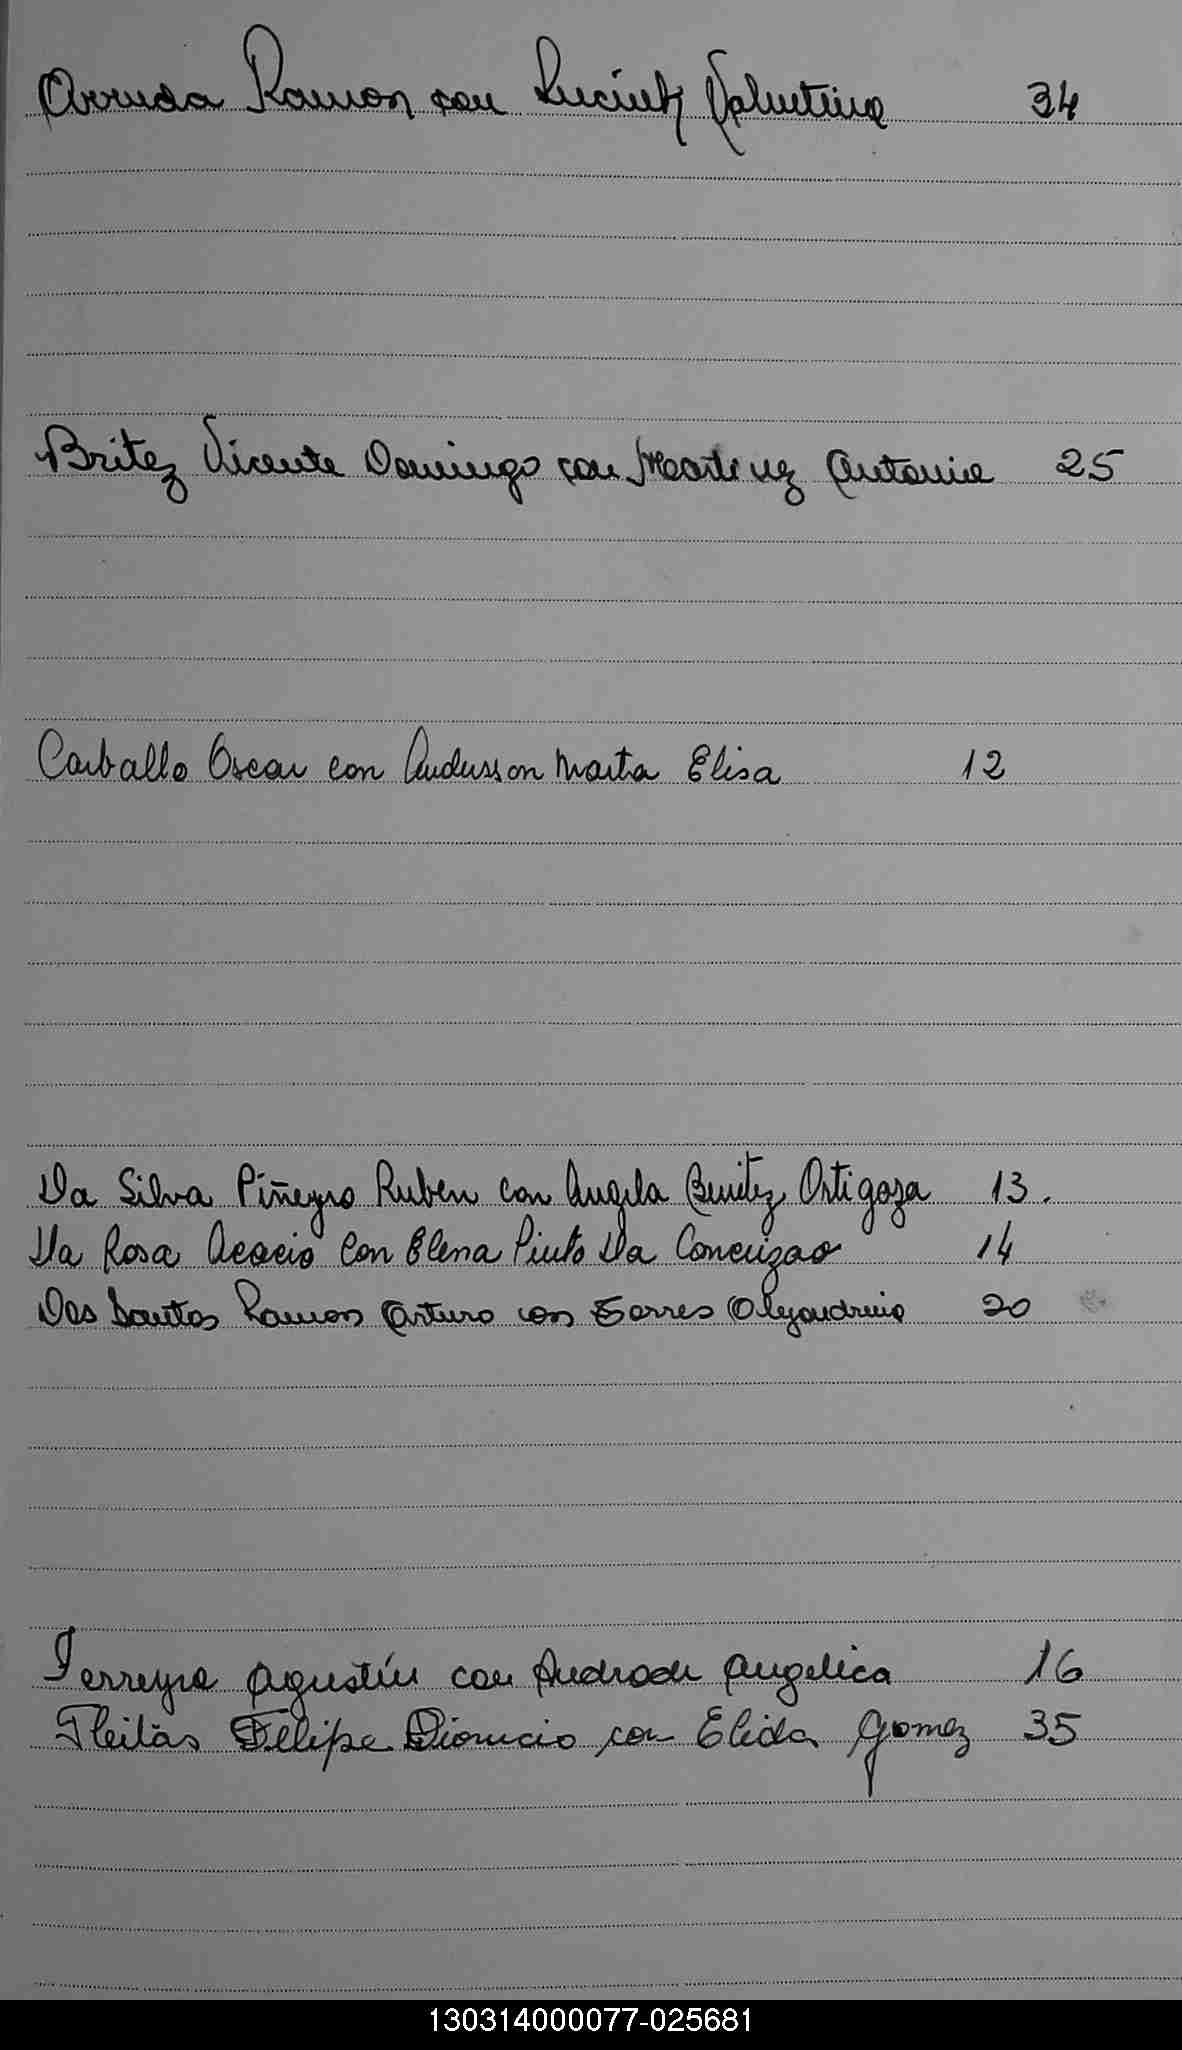 Arruda Ramon con Valentina 34
Britez Vicente Domingo con Martinez Antonia 25
Carballo Oscar con Andersson Marta Elisa 12
Da Silva Piñeyro Ruben con Angela Benitez Ortigoza 13.
Da Rosa Acacio con Elena Pinto Da Conceizao 14
Dos Santos Ramon Arturo con Torres Alejandrina 20
Ferreyra Agustín con Andrade Angelica 16
Fleitas Felipe Dionicio con Elida Gomez 35
130314000077-025681